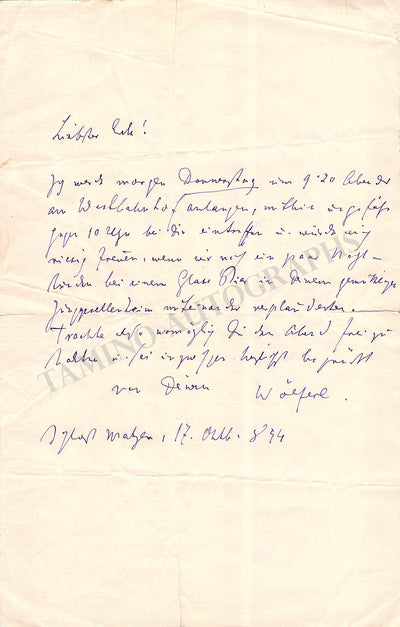 Liebster Eck!
Ich werde morgen Donnerstag um 9·20 Abends
am Westbahnhof anlangen, mithin ungefähr
gegen 10 Uhr bei Dir eintreffen u. würde mich
riesig freuen, wenn wir noch ein paar
Stunden bei einem Glase Bier in Deinem gemüthlichen
Junggesellenheim miteinander verplauderten.
Trachte also womöglich Dir den Abend frei zu
halten u. sei inzwischen herzlichst begrüßt
von Deinem Wölferl.
Schloß Matzen, 17. Oktb. 894
TAMINO AUTOGRAPHS